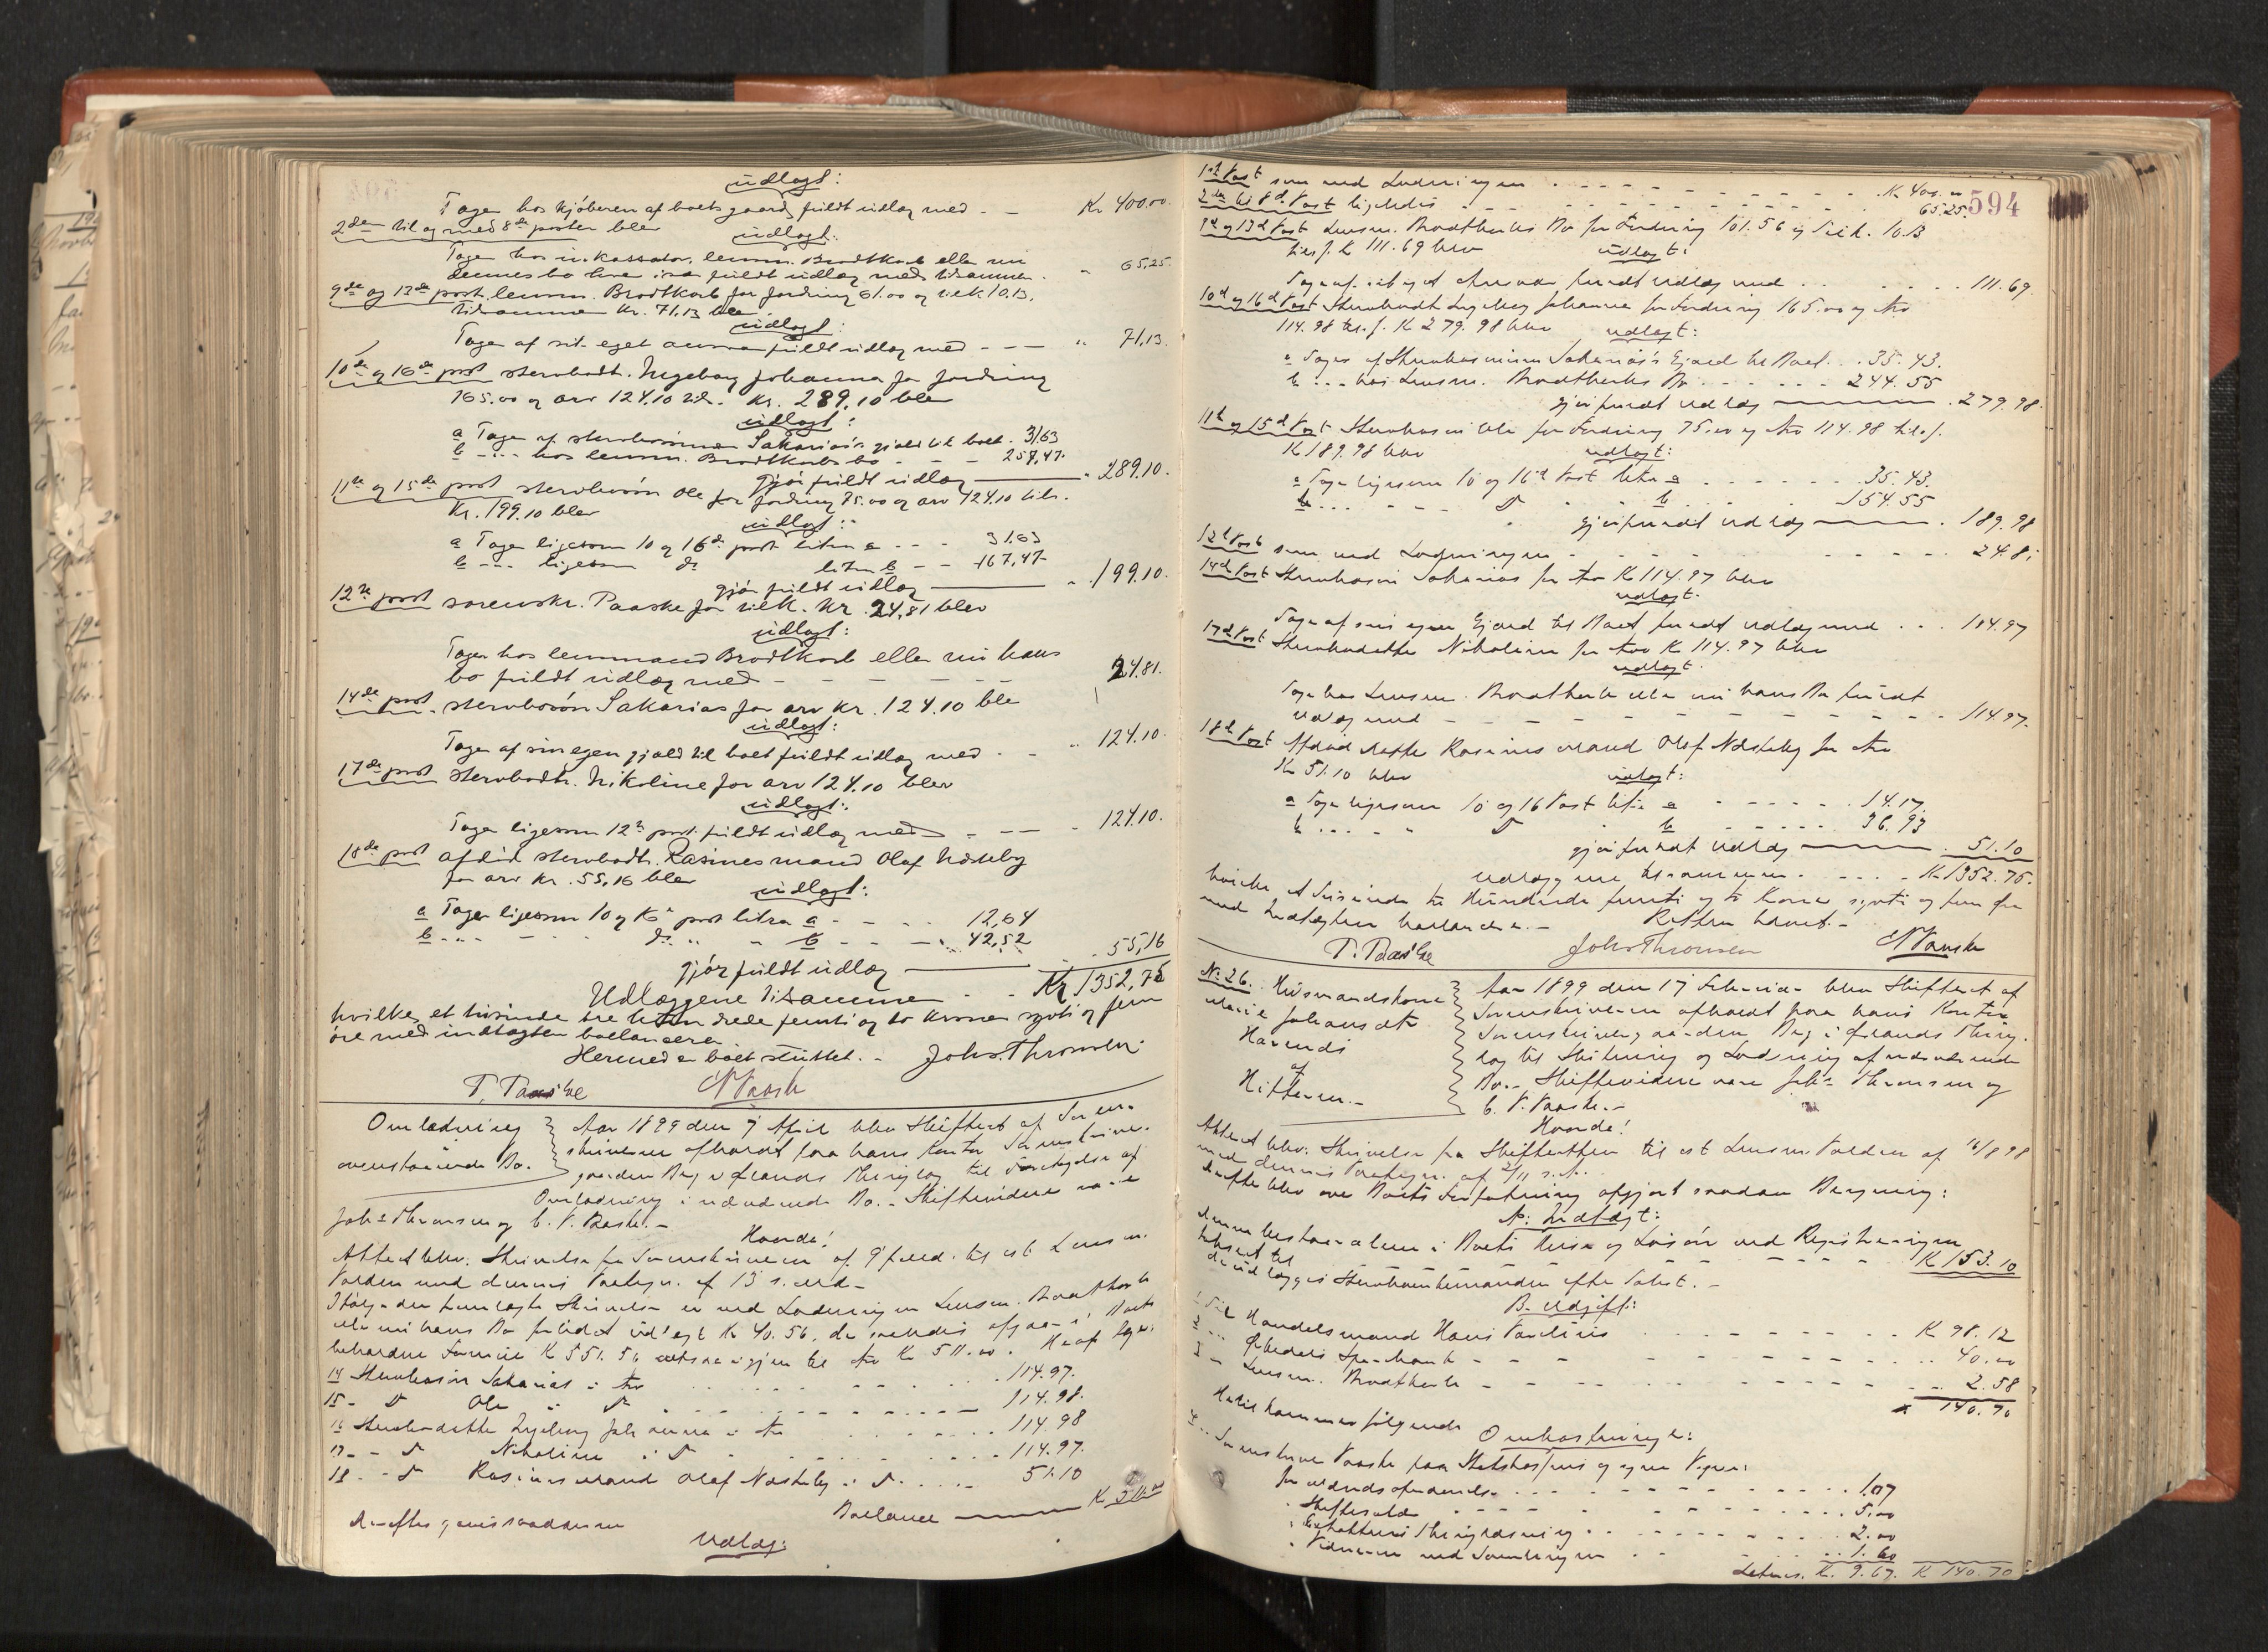 udlagt:
Tager hos kjøberen af boets gaard fuldt udlæg med - - Kr 400.00.
2de til og med 8de poster blev
udlagt:
Tager hos inkassator, lensm. Brodtkorb eller i
dennes bo hver især fuldt udlæg med tilsammen - " 65,25.
9de og 13de post lensm. Brodtkorb for fordring 61.00 og tilk 10.13,
tilsammen Kr. 71.13 blev
udlagt:
Tager af sit eget ansvar fuldt udlæg med - - - " 71,13.
10de og 16de post stervbodt. Ingeborg Johanna for fordring
165.00 og arv 124.10 tils. Kr. 289.10 blev
udlagt:
a Tager af stervbosønnen Sakarias's gjæld til boet . 31.63
b - " - hos lensm. Brodtkorbs bo - - - 257,47.
gjør fuldt udlæg " 289.10.
11te og 15de post stervbosøn Ole for fordring 75.00 og arv 124.10 tils.
Kr. 199.10 blev
udlagt:
a Tager ligesom 10 og 16de post litra a - - - 31.63
b - " - ligesom do litra b - - 167,47.
gjør fuldt udlæg " 199.10.
12te post sorenskr. Paaske for tilk. Kr. 24,81 blev
udlagt:
Tager hos lensmand Brodtkorb eller i hans
bo fuldt udlæg med - - - - - - 24.81.
14de post stervbosøn Sakarias for arv Kr. 124.10 blev
udlagt:
Tager af sin egen gjæld til boet fuldt udlæg med - - " 124.10.
17de post stervbodtr. Nikoline for arv 124.10 blev
udlagt:
Tager ligesom 12te post fuldt udlæg med - - - - 124.10.
18de post afdød stervbodtr. Rasines mand Olaf Næsteby
for arv Kr. 55,16 blev
udlagt:
a Tager ligesom 10 og 16de post litra a - - - 12,64
b - " - - do " " b - - - 42,52
gjør fuldt udlæg - 55,16
Udlæggene tilsammen - - Kr 1352,75
hvilke et tusinde tre hundrede femti og to kroner sytti og fem
øre med indtægten ballancerer.
Hermed er boet sluttet. - Johs. Thronsen
T. Paaske
Omlodning
ovenstaaende Bo.
Aar 1899 den 7 April blev Skifteret af Soren-
skriveren afholdt paa hans Kontor Sorenskriver-
gaarden Bej i Ørlands Thinglag til Foretagelse af
Omlodning i nærværende Bo. - Skiftevidner vare
Johs Thronsen og C. V. Paaske. -
Hvorda!
Aktert blev: Skrivelse fra Sorenskriveren af 9 Febr. til cst Lensm.
Volden med dennes Paategn. af 13 s. Md. -
Ifølge den fremlagte Skrivelse er ved Lodningen Lensm. Brodtkorb
eller i hans Bo for lidet udlagt Kr 40.56, der saaledes afgaar i Boets
beholdne Formue K 551.56 altsaa igjen til Arv Kr 511.00. Heraf tager:
14 Stervbosøn Sakarias i Arv - - - - - - 114.97.
15 - D Ole " D - - - - - - 114.98.
16 Stervbodatter Ingeborg Johanna i Arv - - - - 114.98
17 - - D Nikoline i D - - - - - - 114.97.
18 - - D Rasines Mand Olaf Næsteby i D. - - - - 51.10
Ballance K. 511.00
Derefter gaves saadanne
Udlæg:
594
1ste Post som ved Lodningen - - - - - - - - K 400.00
2den til 8de Post ligeledes - - - - - - - - 65.25
9de og 13de Post Lensm. Brodtkorbs Bo for Fordring 101.56 og Tilk. 10.13
tils. K 111.69 blev udlagt:
Tager af sit eget Ansvar fuldt Udlæg med - - - - - 111.69
10de og 16de Post Stervbodt Ingeborg Johanna for Fordring 165.00 og Arv
114.98 tils. K 279.98 blev udlagt:
a Tager af Stervbosønnen Sakarias's Gjæld til Boet - . 35.43.
b - " - hos Lensm. Brodtkorbs Bo - - - - - 244.55
gjør fuldt Udlæg . 279.98.
11te og 15de Post Stervbosøn Ole for Fordring 75.00 og Arv 114.98 tils.
K 189.98 blev udlagt:
a Tager ligesom 10 og 16de Post litra a - - - - - 35.43.
b - - - - - D " b - - - 154.55
gjør fuldt Udlæg . 189.98
12te Post som ved Lodningen - - - - - - - - 24.81
14de Post Stervbosøn Sakarias for Arv K 114.97 blev
udlagt:
Tager af sin egen Gjæld til Boet fuldt Udlæg med - - - 114.97
17de Post Stervbodatter Nikoline for Arv K 114.97 blev
udlagt:
Tager hos Lensm. Brodtkorb eller i hans Bo fuldt
Udlæg med - - - - - - - - - - 114.97.
18de Post Afdød Datter Rasines Mand Olaf Næsteby for Arv
Kr 51.10 blev udlagt:
a Tager ligesom 10 og 16 Post litra a - - - - - 14.17.
b - - - - " D " b - - - - - 36.93
gjør fuldt Udlæg . 51.10
Udlæggene tilsammen - - - - K 1352.75.
hvilke et Tusinde tre Hundrede femti og to Kroner sytti og fem Øre
med Indtægten ballancerer. - Retten hævet. -
T. Paaske Johs Thronsen
No 26. Husmandskone
Marie Johansdtr
Havnds
af
Hitteren. -
Aar 1899 den 17 Februar blev Skifteret af
Sorenskriveren afholdt paa hans Kontor
Sorenskrivergaarden Bej i Ørlands Thing-
lag til Slutning og Lodning af nærværende
Bo. - Skiftevidner vare Johs Thronsen og
C. V. Paaske. -
Hvorda!
Aktert blev: Skrivelse fra Skifteretten til cst Lensm. Volden af 16/8 98
med dennes Paategn. af 2/11 s. A.
Derefter blev over Boets Forfatning opgjort saadan Beregning:
A: Indtægt:
Denne bestaar alene i Boets Huse og Løsøre ved Registreringen
takseret til - - - - - - - - - K 153.10
der udlægges Stervboenkemanden efter Takst. -
B. Udgift:
1 Til Handelsmand Hans Paulsen - - - - - - K 98.12
2 - " - Ørlandets Sparebank - - - - - - - 40.00
3 - " Lensm. Brodtkorb - - - - - - - 2.58
K 140.70
Hertil kommer følgende Omkostninger:
4 - " Sorenskriver Paaske paa Statskassens og egne Vegne:
for - - - - - - - 1.07
" Skiftesalær - - - - - - - 5.00
" Thinglæsning - - - - - - - 2.00
" Vidnerne ved Samlingen - - - - 1.60
Lateres. K. 9.67. K 140.70